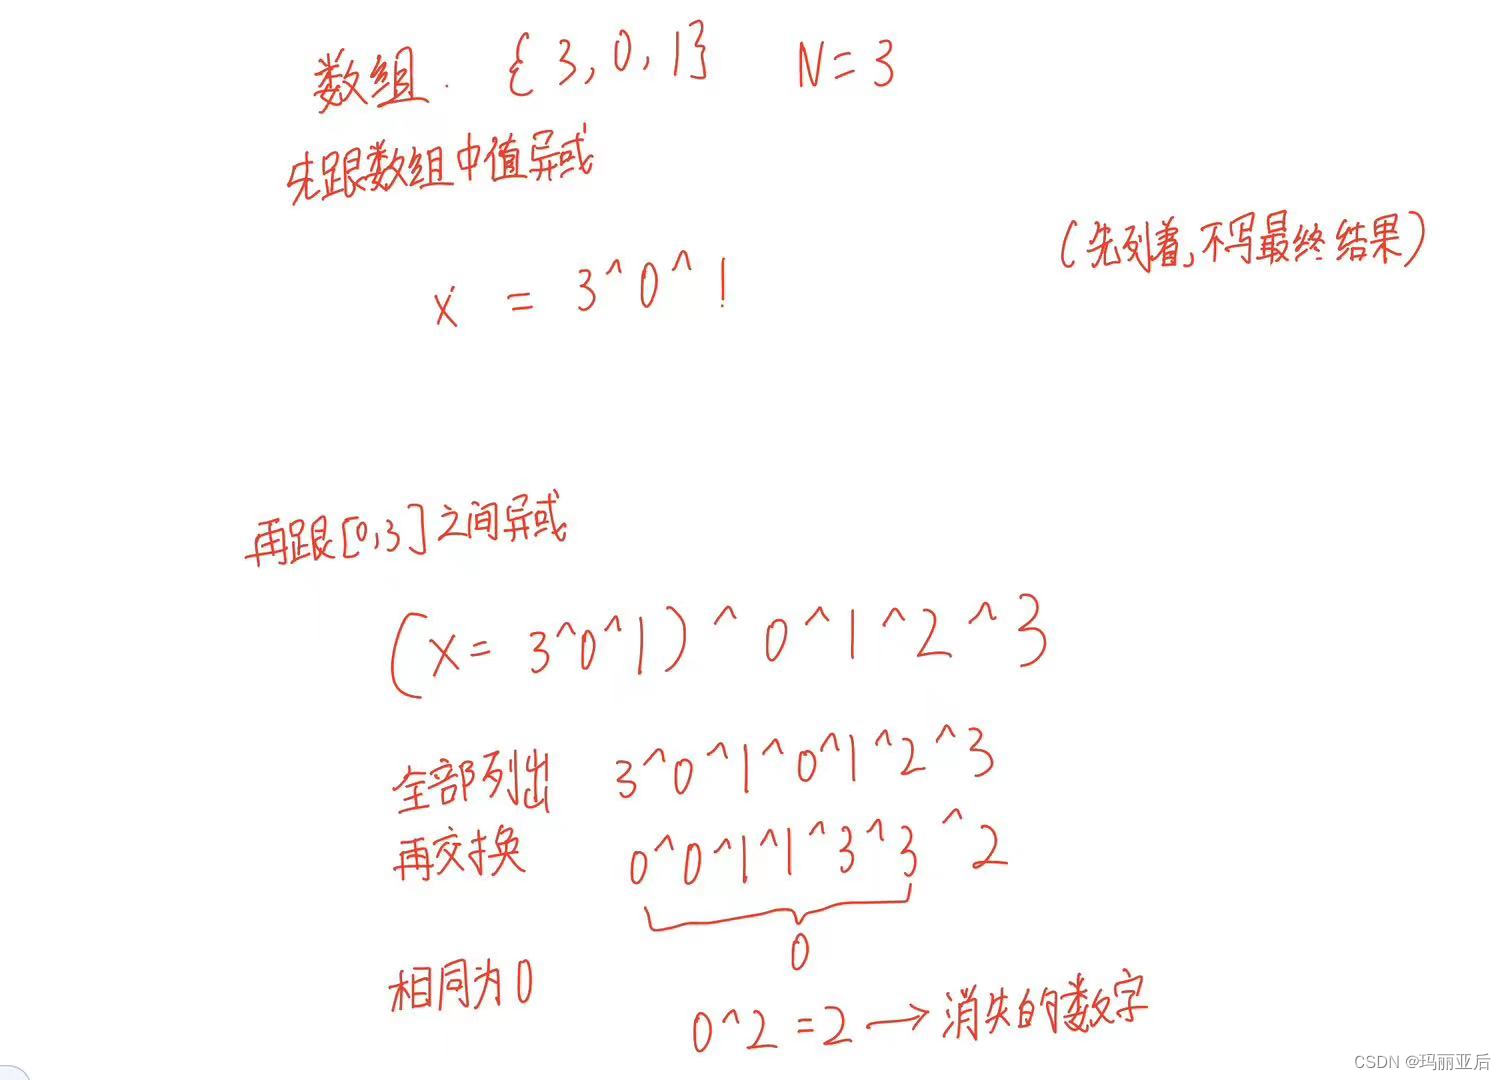 数组. {3,0,1} N=3
先跟数组中值异或
(先列着,不写最终结果)
x = 3^0^1
再跟[0,3]之间异或
(x=3^0^1)^0^1^2^3
全部列出 3^0^1^0^1^2^3
再交换 0^0^1^1^3^3^2
0
相同为0
0^2=2→消失的数字
CSDN @玛丽亚后